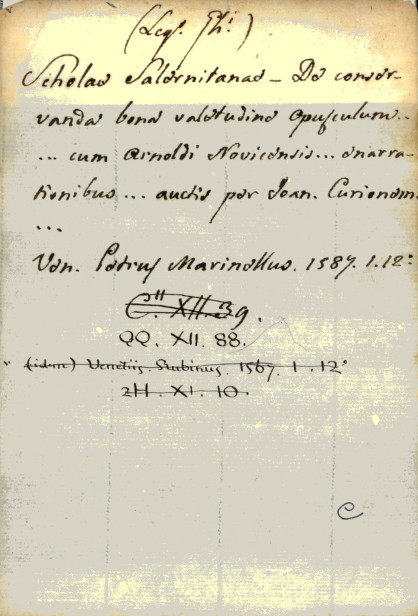 (Legs. Th.i)
Scholae Salernitanae - De conser-
vanda bona valetudine opusculum..
... cum Arnoldi Novicensis... enarra-
tionibus ... auctis per Joan. Curionem.
...
Ven. Petrus Marinellus. 1587. 1.12°
C. XII. 9.
QQ. XII. 88.
(idem) Venetiis. Rubinus. 1567. 1. 12°
2H. XI. 10.
C